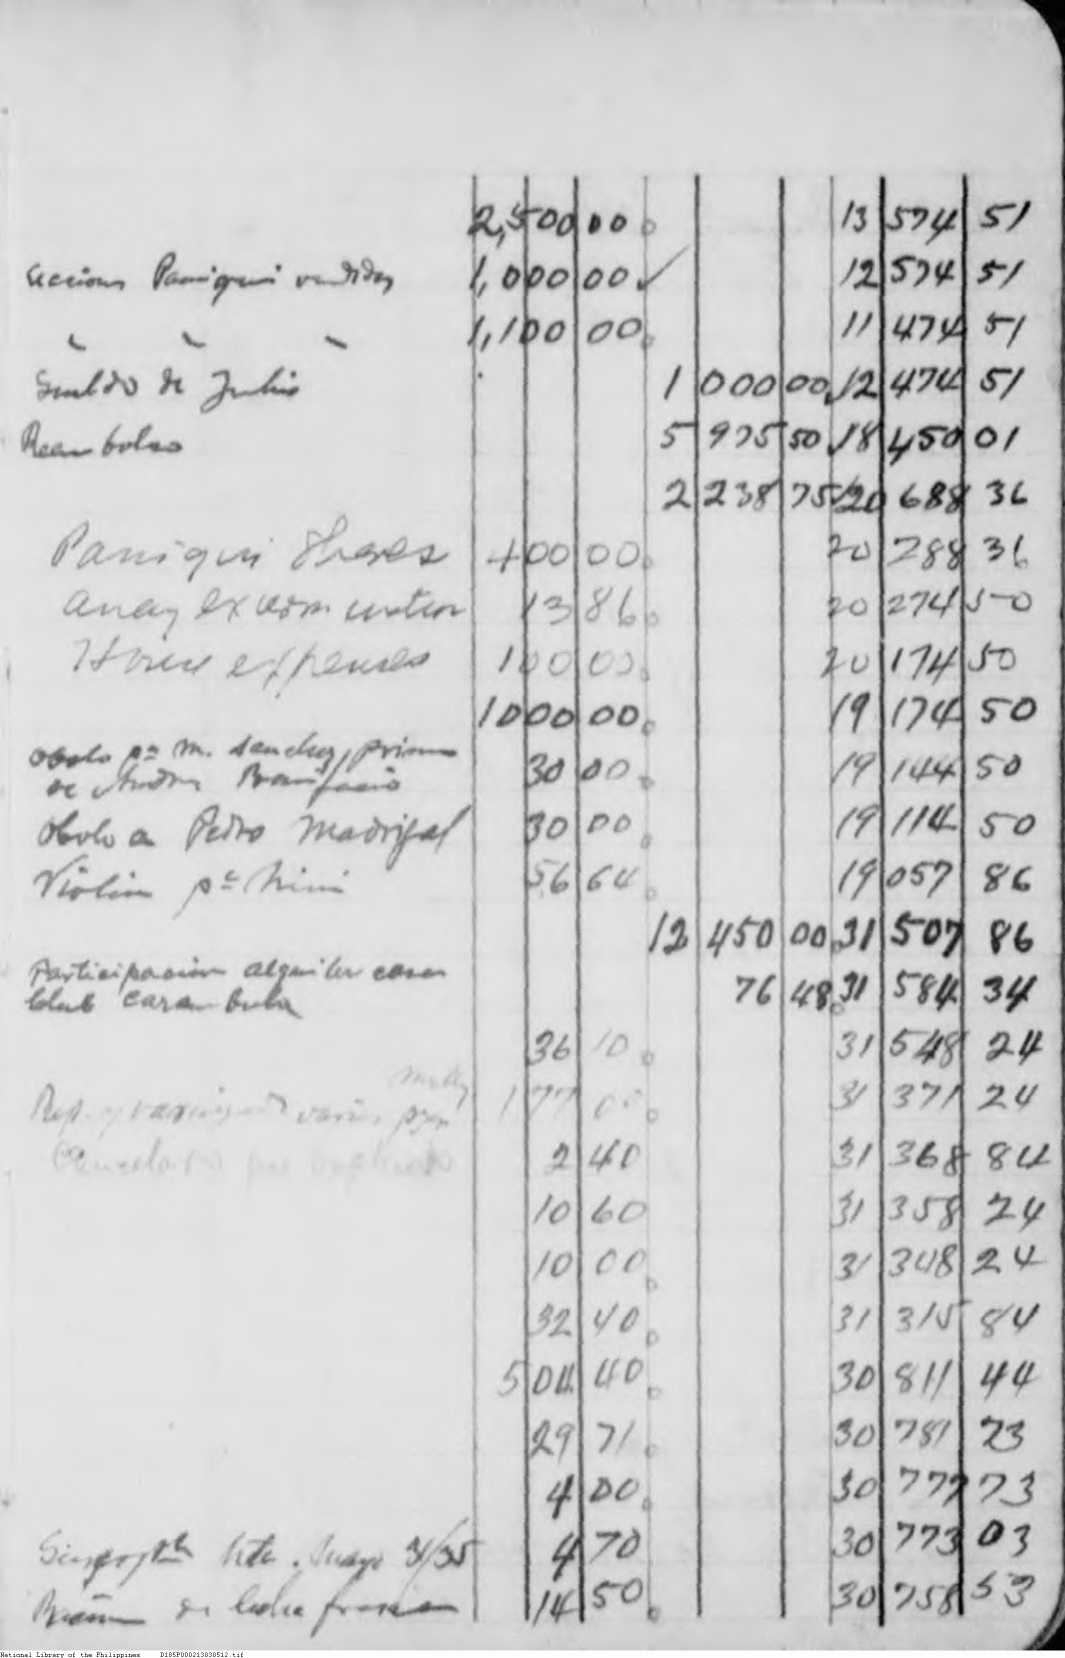 2,500 00 13 574 51
Acciones Paniqui vendidas 1,000 00 ✓ 12 574 51
" " " 1,100 00 11 474 51
Sueldo de Julio 1 000 00 12 474 51
Reembolso 5 975 50 18 450 01
2 238 75 20 688 36
Paniqui Shares 400 00 20 288 36
13 86 20 274 50
House expenses 100 00 20 174 50
1000 00 19 174 50
Obolo pª M. Sanchez, primo
de Andres Bonifacio 30 00 19 144 50
Obolo a Pedro Madrigal 30 00 19 114 50
Violin pª Nini 56 64 19 057 86
12 450 00 31 507 86
Participacion alquiler casa
Club Carambola 76 48 31 584 34
36 10 31 548 24
177 00 31 371 24
2 40 31 368 84
10 60 31 358 24
10 00 31 348 24
32 40 31 315 84
504 40 30 811 44
29 71 30 781 73
4 00 30 777 73
4 70 30 773 03
de leche fresca 14 50 30 758 53
National Library of the Philippines D185P000213838512.tif